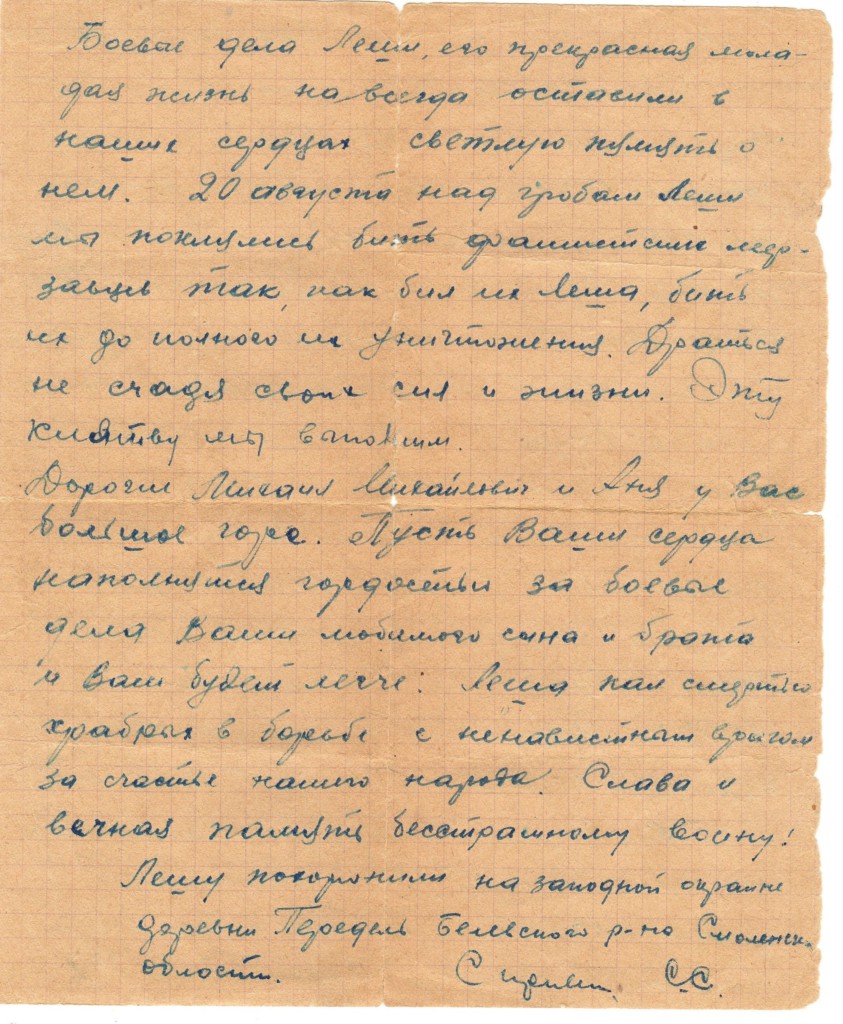 Боевые дела Леши, его прекрасная мола-
дая жизнь на всегда оставили в
наших сердцах светлую память о
нем. 20 августа над гробом Леши
мы поклялись бить фашистских мер-
завцев так, как бил их Леша, бить
их до полного их уничтожения. Драться
не счадя своих сил и жизни. Эту
клятву мы выполним.
Дорогие Михаил Михайлович и Аня у Вас
большое горе. Пусть Ваши сердца
наполнятся гордостью за боевые
дела Ваши любимого сына и брата
и Вам будет легче. Леша пал смертью
храбрых в борьбе с ненавистным врагом
за счастье нашего народа. Слава и
вечная память бесстрашному воину!
Лешу похоронили на западной окраине
деревни Передель Бельского р-на Смоленск.
области. С привет. С.С.